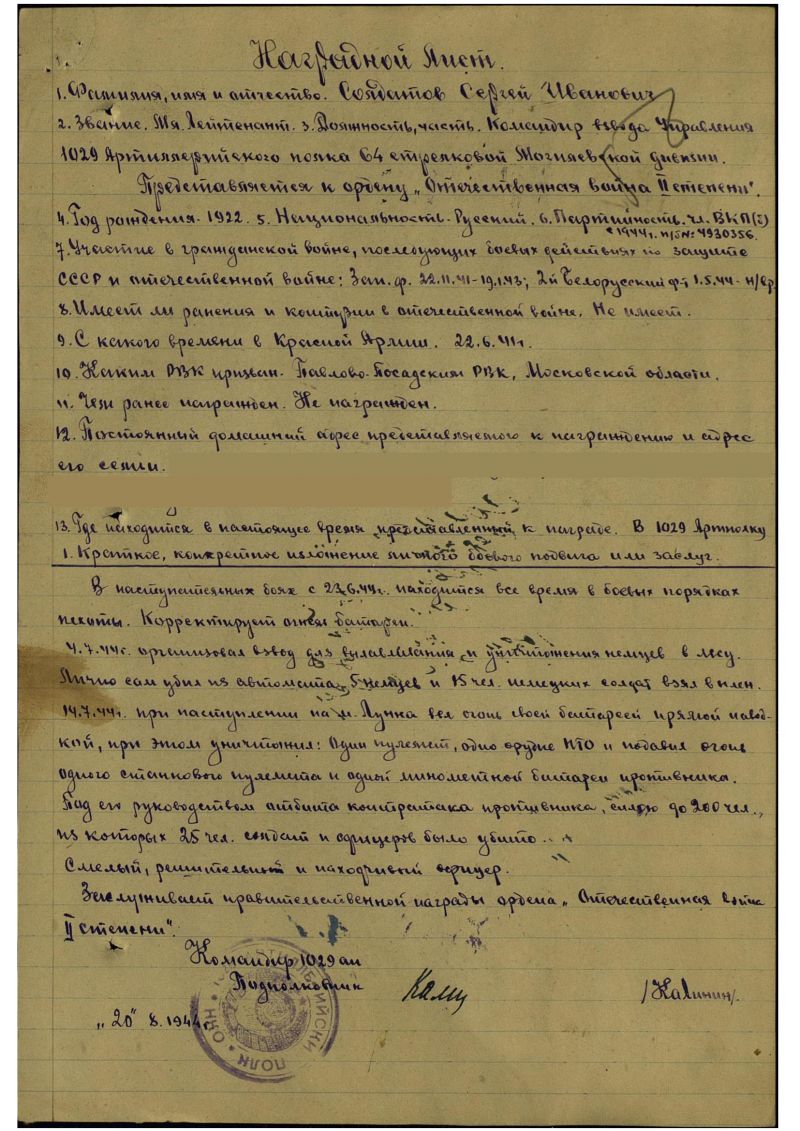 Наградной Лист.
1. Фамилия, имя и отчество. Солдатов Сергей Иванович
2. Звание. Мл. Лейтенант. 3. Должность, часть. Командир взвода Управления
1029 Артиллерийского полка 64 стрелковой Могилевской дивизии.
Представляется к ордену „Отечественная война II степени".
4. Год рождения - 1922. 5. Национальность - Русский. 6. Партийность. чл. ВКП(б)
с 1944г. п/б № 4930356.
7. Участие в гражданской войне, последующих боевых действиях по защите
СССР и отечественной войне: Зап. ф. 22.11.41-19.1.43; 2й Белорусский ф-т 1.5.44 - н/вр
8. Имеет ли ранения и контузии в отечественной войне. Не имеет.
9. С какого времени в Красной Армии. 22.6.41г.
10. Каким РВК призван. Павлово-Посадским РВК, Московской области.
11. Чем ранее награжден. Не награжден.
12. Постоянный домашний адрес представляемого к награждению и адрес
его семьи.
13. Где находится в настоящее время представленный к награде. В 1029 Артполку
1. Краткое, конкретное изложение личного боевого подвига или заслуг.
В наступательных боях с 23.6.44г. находится все время в боевых порядках
пехоты. Корректирует огнем батареи.
4.7.44г. организовал взвод для вылавливания и уничтожения немцев в лесу.
Лично сам убил из автомата 5 немцев и 15 чел. немецких солдат взял в плен.
14.7.44г. при наступлении на м. Лунка вел огонь своей батареей прямой навод-
кой, при этом уничтожил: Один пулемет, одно орудие ПТО и подавил огонь
одного станкового пулемета и одной минометной батареи противника.
Под его руководством отбита контратака противника, силою до 200 чел.,
из которых 25 чел. солдат и офицеров было убито.
Смелый, решительный и находчивый офицер.
Заслуживает правительственной награды ордена „Отечественная война
II степени".
Командир 1029 ап
Подполковник
/Калинин/.
„20" 8.1944г.
ПОЛК